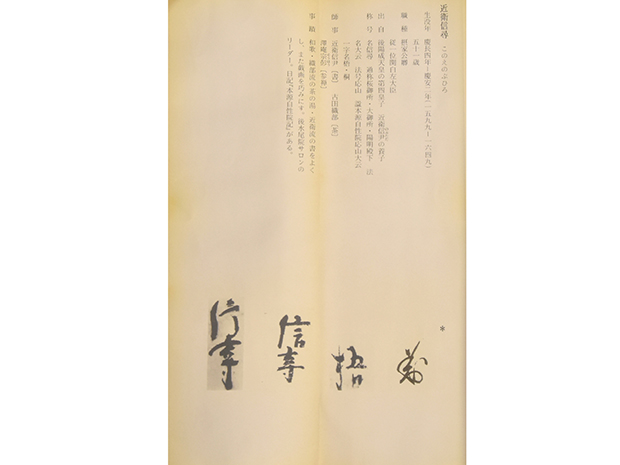 近衛信尋 このえのぶひろ
生没年 慶長四年―慶安二年(一五九九―一六四九)
五十一歳
職種 摂家公卿
従一位関白左大臣
出自 後陽成天皇の第四皇子 近衛信尹の養子
称号 名信尋 通称桜御所・大御所・陽明殿下 法
名大云 法号応山 諡本源自性院応山大云
一字名梧・桐
師事 近衛信尹〔書〕 古田織部〔茶〕
沢庵宗彭〔参禅〕
事績 和歌・織部流の茶の湯・近衛流の書をよく
し、また戯画を巧みにす。後水尾院サロンの
リーダー。日記『本源自性院記』がある。
*
梧
信尋